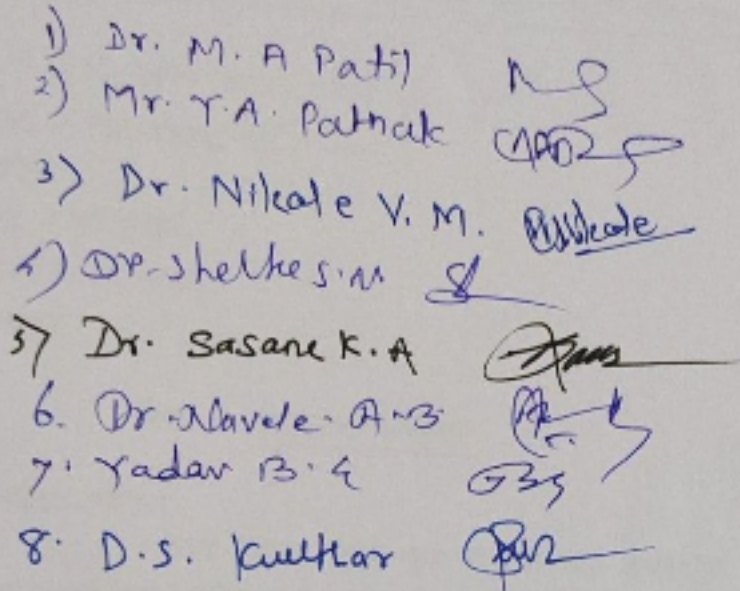 1) Dr. M. A Patil
2) Mr. Y. A. Pathak
3) Dr. Nikale V. M.
4) Dr. Shelke S. M.
5) Dr. Sasane K. A
6. Dr. Navele. A. B
7. Yadav B. G
8. D. S. Kulthar